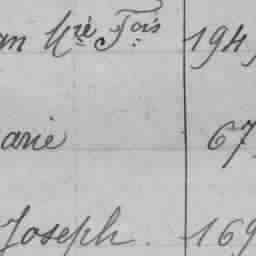 an Hré Fois 194
arie 67
Joseph. 169